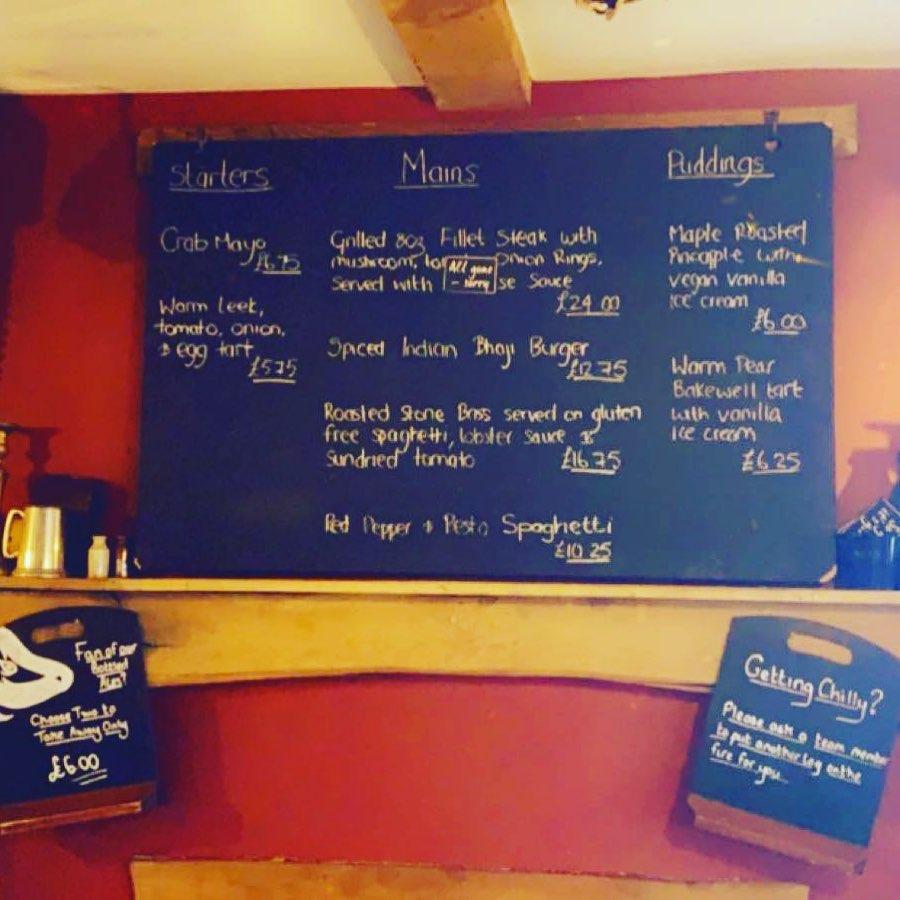 Starters
Crab Mayo
£6.75
Warm leek,
tomato, onion,
& egg tart
£5.75
Mains
Grilled 8oz Fillet Steak with
mushroom, Onion Rings,
served with Sauce
All gone
- sorry
£24.00
Spiced Indian Bhaji Burger
£12.75
Roasted Stone Bass served on gluten
free spaghetti, lobster sauce &
sundried tomato
£16.75
Red Pepper & Pesto Spaghetti
£10.25
Puddings
Maple Roasted
Pineapple with
vegan vanilla
ice cream
£6.00
Warm Pear
Bakewell tart
with vanilla
ice cream
£6.25
Fan of our
Bottled
Ales?
Choose Two to
Take Away Only
£6.00
Getting Chilly?
Please ask a team member
to put another log on the
fire for you